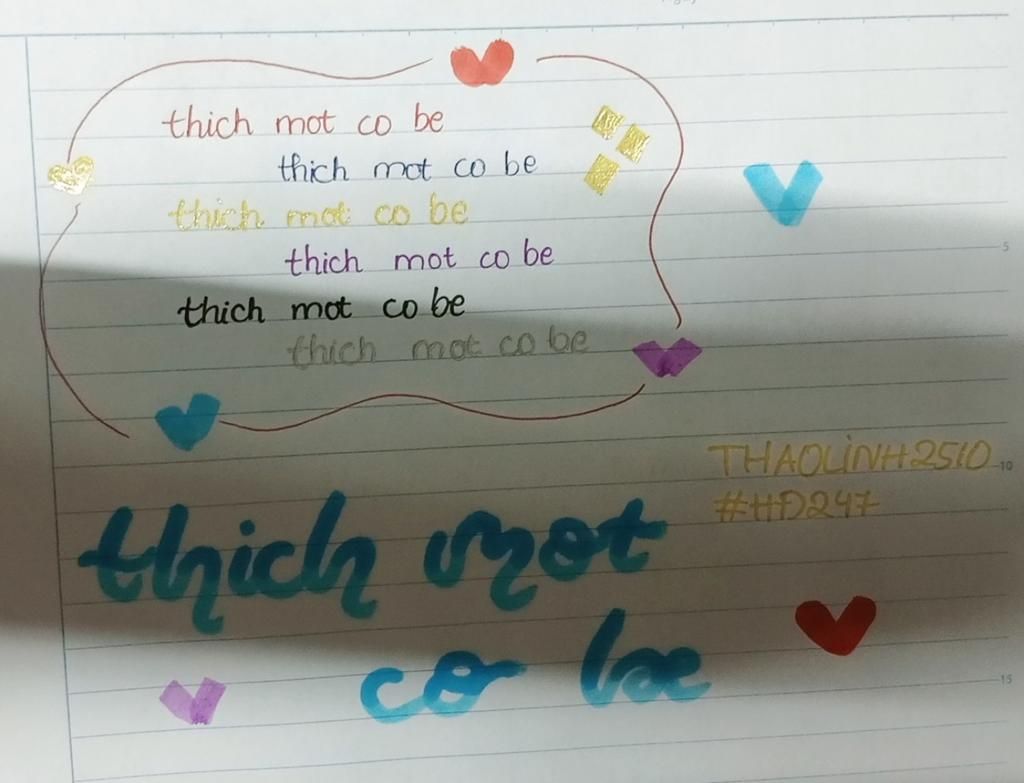 thich mot co be
thich mot co be
thich mot co be
thich mot co be
thich mot co be
thich mot co be
5
THAOLiNH2510
10
#HĐ247
thich mot
co be
15